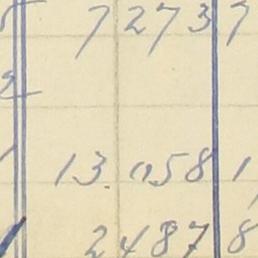 7 273 7
2
13.058 1
2487 8